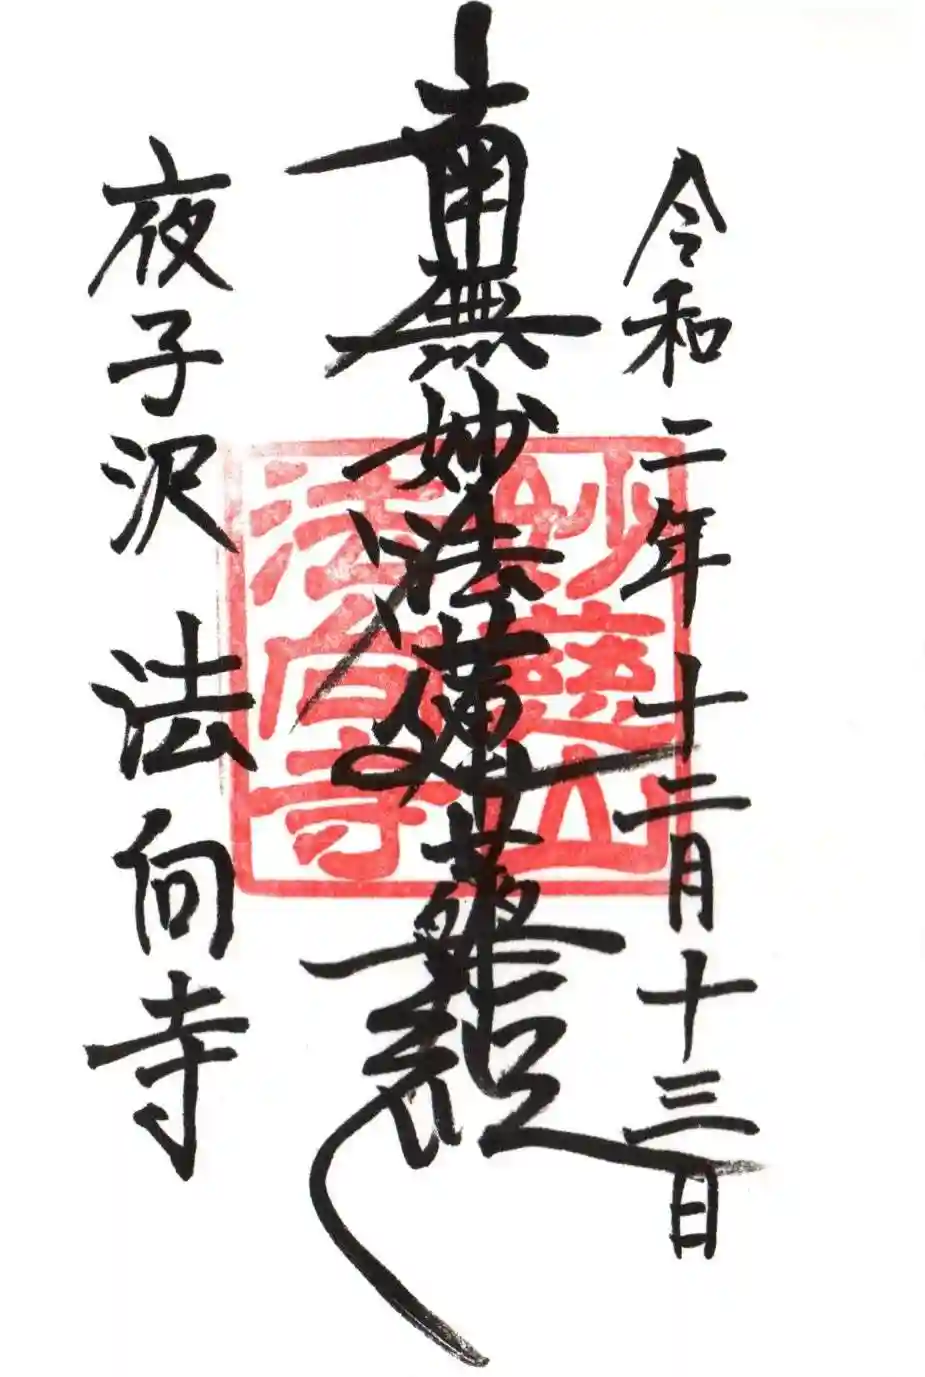 令和二年十二月十三日
南無妙法蓮華経
夜子沢 法向寺
妙慈山
法向寺